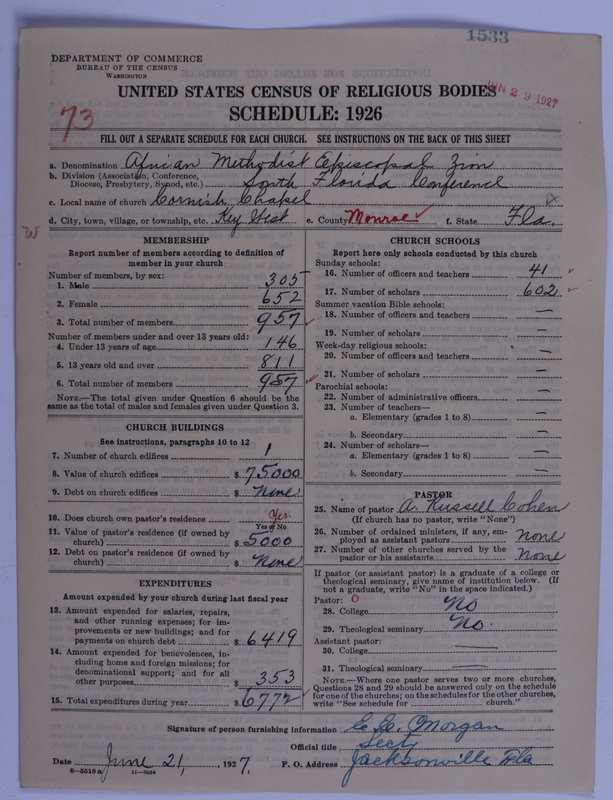 1533
DEPARTMENT OF COMMERCE
BUREAU OF THE CENSUS
WASHINGTON
JUN 29 1927
UNITED STATES CENSUS OF RELIGIOUS BODIES
73
SCHEDULE: 1926
FILL OUT A SEPARATE SCHEDULE FOR EACH CHURCH. SEE INSTRUCTIONS ON THE BACK OF THIS SHEET
a. Denomination African Methodist Episcopal Zion
b. Division (Association, Conference, Diocese, Presbytery, Synod, etc.) South Florida Conference
c. Local name of church Cornish Chapel
d. City, town, village, or township, etc. Key West e. County Monroe ✓ f. State Fla.
W
MEMBERSHIP
Report number of members according to definition of
member in your church
Number of members, by sex:
1. Male 305
2. Female 652
3. Total number of members 957
Number of members under and over 13 years old:
4. Under 13 years of age 146
5. 13 years old and over 811
6. Total number of members 957
NOTE.—The total given under Question 6 should be the
same as the total of males and females given under Question 3.
CHURCH BUILDINGS
See instructions, paragraphs 10 to 12
7. Number of church edifices 1
8. Value of church edifices $ 75000
9. Debt on church edifices $ None
10. Does church own pastor's residence Yes.
Yes or No
11. Value of pastor's residence (if owned by
church) $ 5000
12. Debt on pastor's residence (if owned by
church) $ None
EXPENDITURES
Amount expended by your church during last fiscal year
13. Amount expended for salaries, repairs,
and other running expenses; for im-
provements or new buildings; and for
payments on church debt $ 6419
14. Amount expended for benevolences, in-
cluding home and foreign missions; for
denominational support; and for all
other purposes $ 353
15. Total expenditures during year $ 6772
CHURCH SCHOOLS
Report here only schools conducted by this church
Sunday schools:
16. Number of officers and teachers 41
17. Number of scholars 602
Summer vacation Bible schools:
18. Number of officers and teachers —
19. Number of scholars —
Week-day religious schools:
20. Number of officers and teachers —
21. Number of scholars —
Parochial schools:
22. Number of administrative officers —
23. Number of teachers—
a. Elementary (grades 1 to 8) —
b. Secondary —
24. Number of scholars—
a. Elementary (grades 1 to 8) —
b. Secondary —
PASTOR
25. Name of pastor A. Russell Cohen
(If church has no pastor, write "None")
26. Number of ordained ministers, if any, em-
ployed as assistant pastors none
27. Number of other churches served by the
pastor or his assistants none
If pastor (or assistant pastor) is a graduate of a college or
theological seminary, give name of institution below. (If
not a graduate, write "No" in the space indicated.)
Pastor: 0
28. College No
29. Theological seminary No.
Assistant pastor:
30. College —
31. Theological seminary —
NOTE.—Where one pastor serves two or more churches,
Questions 28 and 29 should be answered only on the schedule
for one of the churches; on the schedules for the other churches,
write "See schedule for church."
Signature of person furnishing information Morgan
Official title Secty
Date June 21, 1927. P. O. Address Jacksonville Fla
8—5518a 11—9084